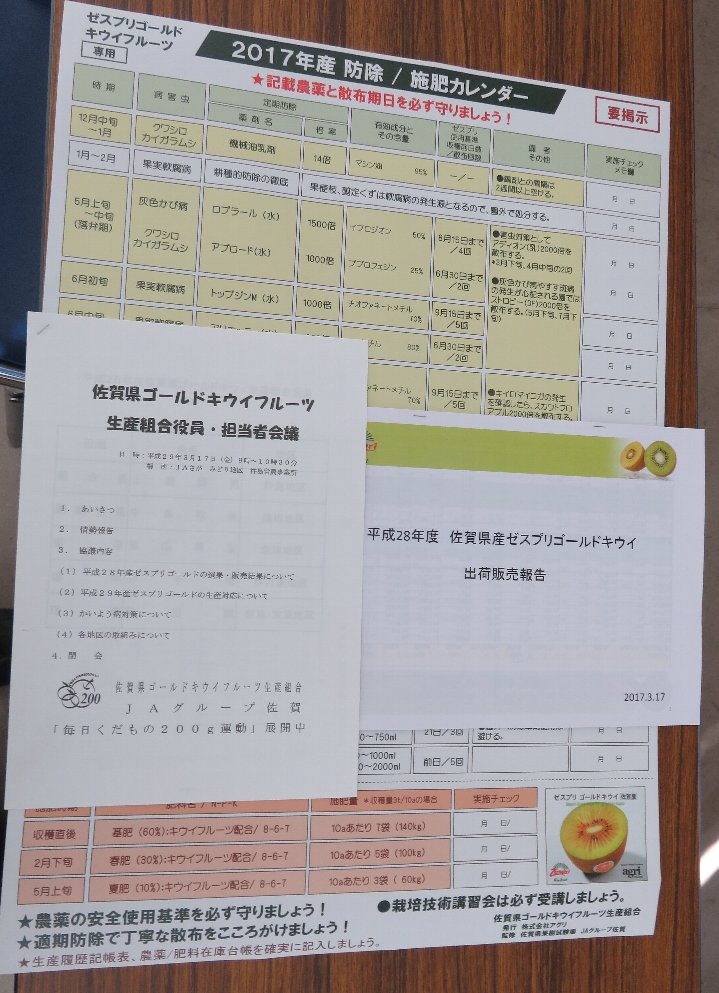 ゼスプリゴールド
キウイフルーツ
専用
2017年産 防除 / 施肥カレンダー
★記載農薬と散布期日を必ず守りましょう！
要掲示
時期 病害虫 定期防除 薬剤名 倍率 有効成分とその含量 ゼスプリ使用基準 収穫前日数/散布回数 備考その他 実施チェックメモ欄
12月中旬～1月 クワシロカイガラムシ 機械油乳剤 14倍 マシン油 95% －／－ 2週間以上空ける。 月 日
1月～2月 果実軟腐病 耕種的防除の徹底 果梗枝、剪定くずは軟腐病の発生源となるので、園外で処分する。 月 日
5月上旬～中旬(落弁期) 灰色かび病 ロブラール（水） 1500倍 イプロジオン 50% 8月15日まで/2回 月 日
クワシロカイガラムシ アプロード(水) 1000倍 ブプロフェジン 25% 6月30日まで/2回 月 日
●害虫対策として
アディオン(乳)2000倍を
散布する。
*3月下旬、4月中旬の2回
●灰色かび病
ストロビー(DF)2000倍を
散布する。(5月下旬、7月下旬)
6月初旬 果実軟腐病 トップジンM（水） 1000倍 チオファネートメチル 70% 9月15日まで/5回 月 日
6月中旬 果実軟腐病 チル 80% 6月30日まで/2回 月 日
ァネートメチル 70% 9月15日まで/5回 月 日
●キイロマイコガの発生
を確認したら、スカウトフロ
アブル2000倍を散布する。
佐賀県ゴールドキウイフルーツ
生産組合役員・担当者会議
日 時：平成29年3月17日（金）9時～10時30分
場 所：JAさが みどり地区 杵島営農事業所
1． あいさつ
2． 情勢報告
3． 協議内容
（1）平成28年産ゼスプリゴールドの選果・販売結果について
（2）平成29年産ゼスプリゴールドの生産対応について
（3）かいよう病対策について
（4）各地区の取組みについて
4．閉 会
200
佐賀県ゴールドキウイフルーツ生産組合
JAグループ佐賀
「毎日くだもの200g運動」展開中
平成28年度 佐賀県産ゼスプリゴールドキウイ
出荷販売報告
2017.3.17
～750ml 21日/3回 避ける。 月 日
～1000ml
～2000ml 前日/5回 月 日
肥料名 / N-P-K 施肥量 *収穫量3t/10aの場合 実施チェック
収穫直後 基肥 (60%):キウイフルーツ配合/ 8-6-7 10aあたり 7袋 (140kg) 月 日/
2月下旬 春肥 (30%):キウイフルーツ配合/ 8-6-7 10aあたり 5袋 (100kg) 月 日/
5月上旬 夏肥 (10%):キウイフルーツ配合/ 8-6-7 10aあたり 3袋 ( 60kg) 月 日/
ゼスプリ ゴールド キウイ 佐賀産
Zespri
agri
★農薬の安全使用基準を必ず守りましょう！
●栽培技術講習会は必ず受講しましょう。
★適期防除で丁寧な散布をこころがけましょう！
★生産履歴記帳表、農薬/肥料在庫台帳を確実に記入しましょう。
佐賀県ゴールドキウイフルーツ生産組合
発行 株式会社アグリ
監修 佐賀県果樹試験場 JAグループ佐賀